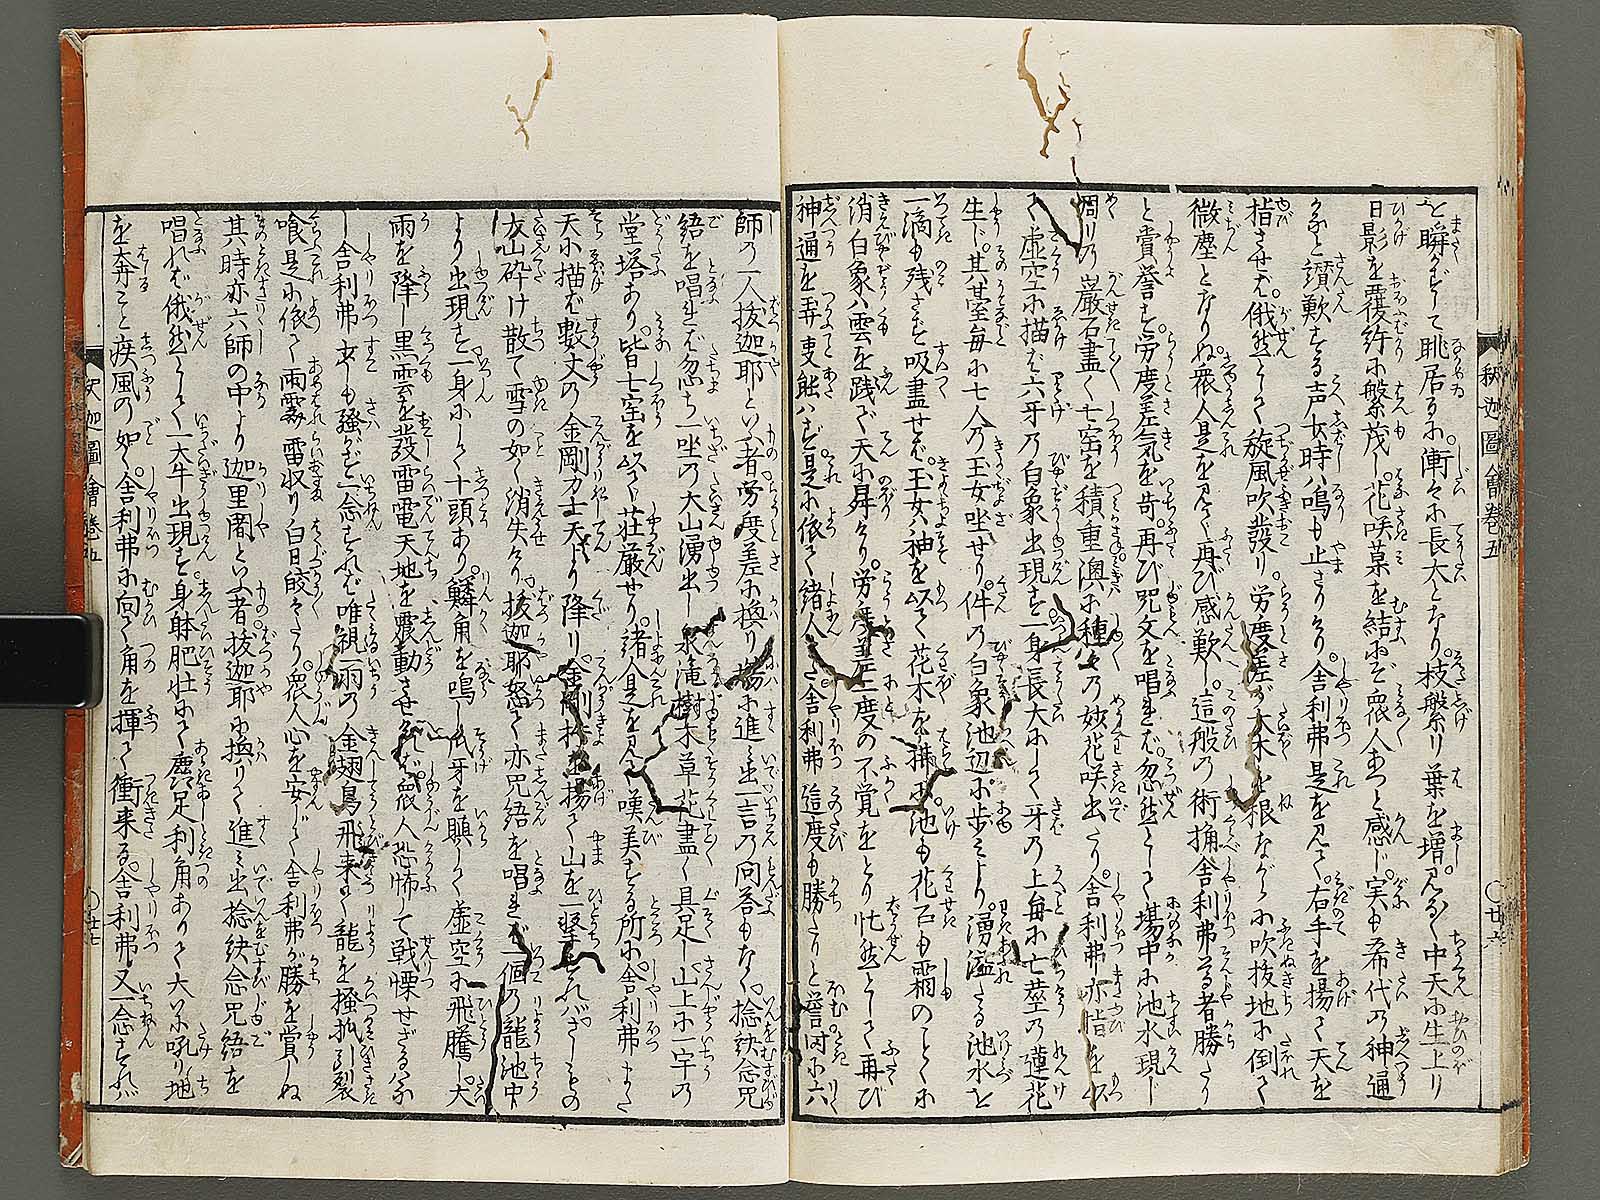 と瞬がずして眺居るに漸々に長大となり。枝繁り葉を増。見るく中天に生上り
日影を覆許に繁茂し。花咲菓を結ゆゑ衆人あつと感じ。実も希代の神通
かなと讃歎する声暫時ハ鳴も止ざりけり。舎利弗是を見て。右手を揚て天を
指させば。俄然として旋風吹發り。労度差が大木を根ながらに吹抜地に倒て
微塵となりぬ。衆人是を見て再び感歎し。這般の術摘舎利弗尊者勝
と賞誉す。労度差気を苛。再び呪文を唱れば。忽然として場中に池水現じ
周りの巌石盡く七宝を積重奥に種々の妙花咲出たり。舎利弗亦指を以
て虚空に描ば六牙の白象出現す一身長大にして牙の上毎に七茎の蓮花
生じ。其茎毎に七人の玉女坐せり。件の白象池辺に歩より。湧溢たる池水を
一滴も残さず吸盡せば。玉女ハ神を以て花木を払。池も花石も霜のとくに
消白象ハ雲を践で天に昇けり。労度差二度の不覚をとり忙然として再び
神通を弄更能ハず。是に依て緒人。舎利弗這度も勝たりと誉囲に六
釈迦圖會巻五
〇廿六
師の一人拔迦耶といふ者労度差に換り場に進み出一言の问答もなく。捻訣念咒
語を唱れば忽ち一坐の大山湧出し泉滝樹木草花盡く具足し山上に一宇の
堂塔あり。皆七宝を以て荘厳せり。諸人是を見て嘆美する所に舎利弗また
天に描ば數丈の金剛力士天より降り。金剛杵を揚て山を一撃すれバさしもの
大山砕け散て雪の如く消失けり。拔迦耶怒て亦咒語を唱れば一個の龍池中
より出現す一身にして十頭あり。鱗角を鳴し爪牙を瞋して虚空に飛騰し大
雨を降し黒雲を發雷電天地を震動させければ。衆人恐怖して戦慄せざるハなし
舎利弗少も騒がず一念すれば唯視一雨の金翅鳥飛来て龍を搔抓引裂
喰是に依て雨霽雷収り白日皎々たり。衆人心を安じて舎利弗が勝を賞しぬ
其時亦六師の中より迦里闍といふ者拔迦耶に換りて進み出捻訣念咒語を
唱れば俄然として一大牛出現す。身躰肥壮にて麤足利角ありて大に吼り地
を奔こと疾風の如く。舎利弗に向て角を揮て衝来る。舎利弗又一念すれバ
釈迦圖會巻五
〇廿七